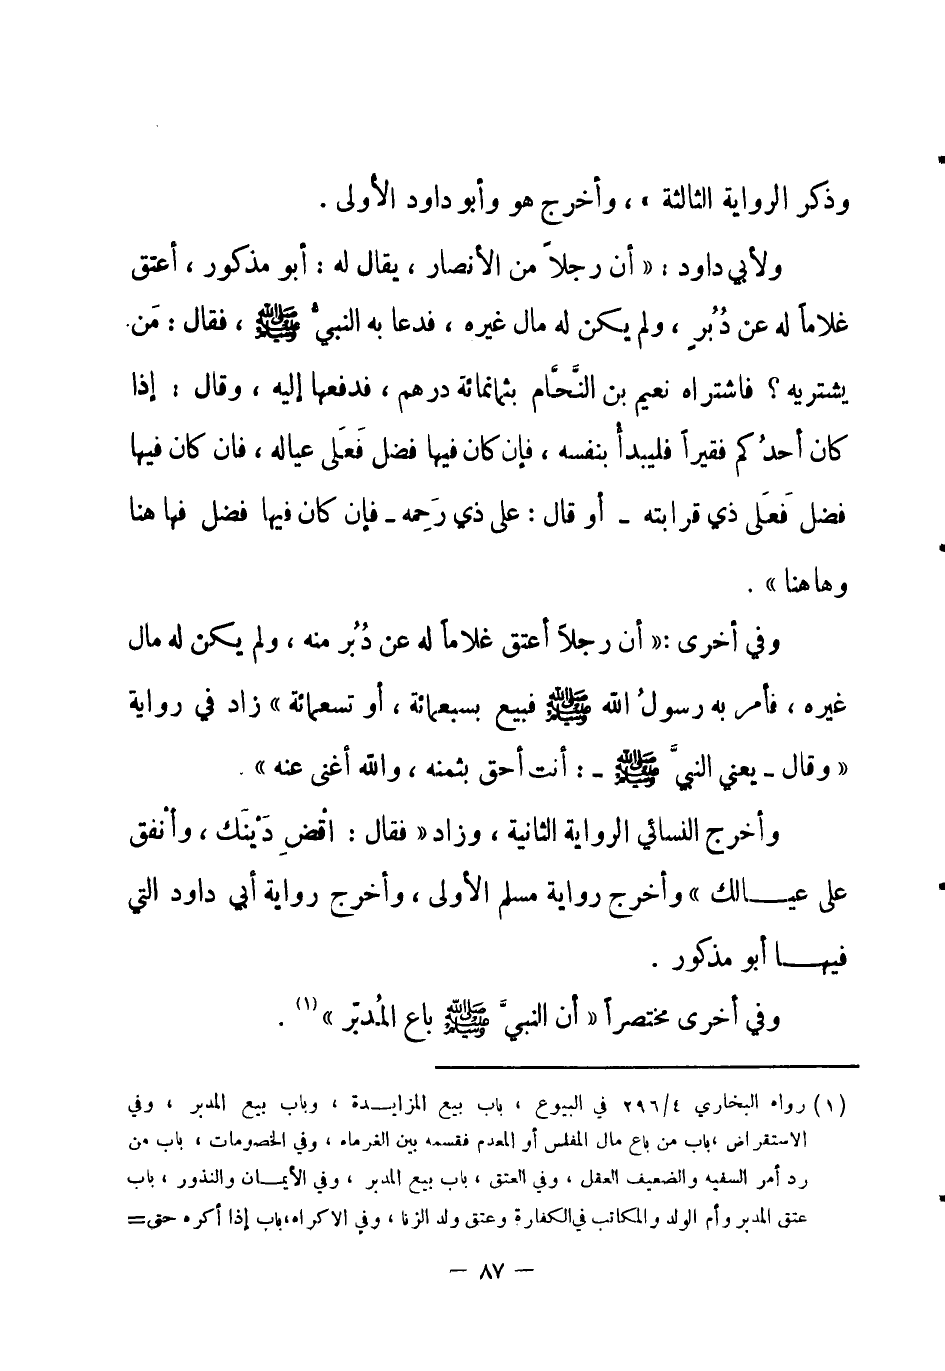 وذكر الرواية الثالثة » ، وأخرج هو وأبو داود الأولى .
ولأبي داود : « أن رجلاً من الأنصار ، يقال له : أبو مذكور ، أعتق
غلاماً له عن دُبُرٍ ، ولم يكن له مال غيره ، فدعا به النبيُّ ﷺ ، فقال : مَن
يشتريه ؟ فاشتراه نعيم بن النَّحَّام بثمانمائة درهم ، فدفعها إليه ، وقال : إذا
كان أحدُكم فقيراً فليبدأْ بنفسه ، فإن كان فيها فضل فَعَلَى عياله ، فان كان فيها
فضل فَعَلَى ذي قرابته ـ أو قال : على ذي رَحِمه ـ فإن كان فيها فضل فها هنا
وهاهنا » .
وفي أخرى :« أن رجلاً أعتق غلاماً له عن دُبُر منه ، ولم يكن له مال
غيره ، فأمر به رسولُ الله ﷺ فبيع بسبعمائة ، أو تسعمائة » زاد في رواية
« وقال ـ يعني النبيَّ ﷺ ـ : أنت أحق بثمنه ، والله أغنى عنه » .
وأخرج النسائي الرواية الثانية ، وزاد « فقال : اقْضِ دَيْنَك ، وأنْفق
على عيــالك » وأخرج رواية مسلم الأولى ، وأخرج رواية أبي داود التي
فيهــا أبو مذكور .
وفي أخرى مختصراً « أن النبيَّ ﷺ باع المُدبّر » (١) .
(١) رواه البخاري ٢٩٦/٤ في البيوع ، باب بيع المزايــدة ، وباب بيع المدبر ، وفي
الاستقراض ،باب من باع مال المفلس أو المعدم فقسمه بين الغرماء ، وفي الخصومات ، باب من
رد أمر السفيه والضعيف العقل ، وفي العتق ، باب بيع المدبر ، وفي الأيمــان والنذور ، باب
عتق المدبر وأم الولد والمكاتب في الكفارة وعتق ولد الزنا ، وفي الاكراه،باب إذا أكره حتى=
— ٨٧ —